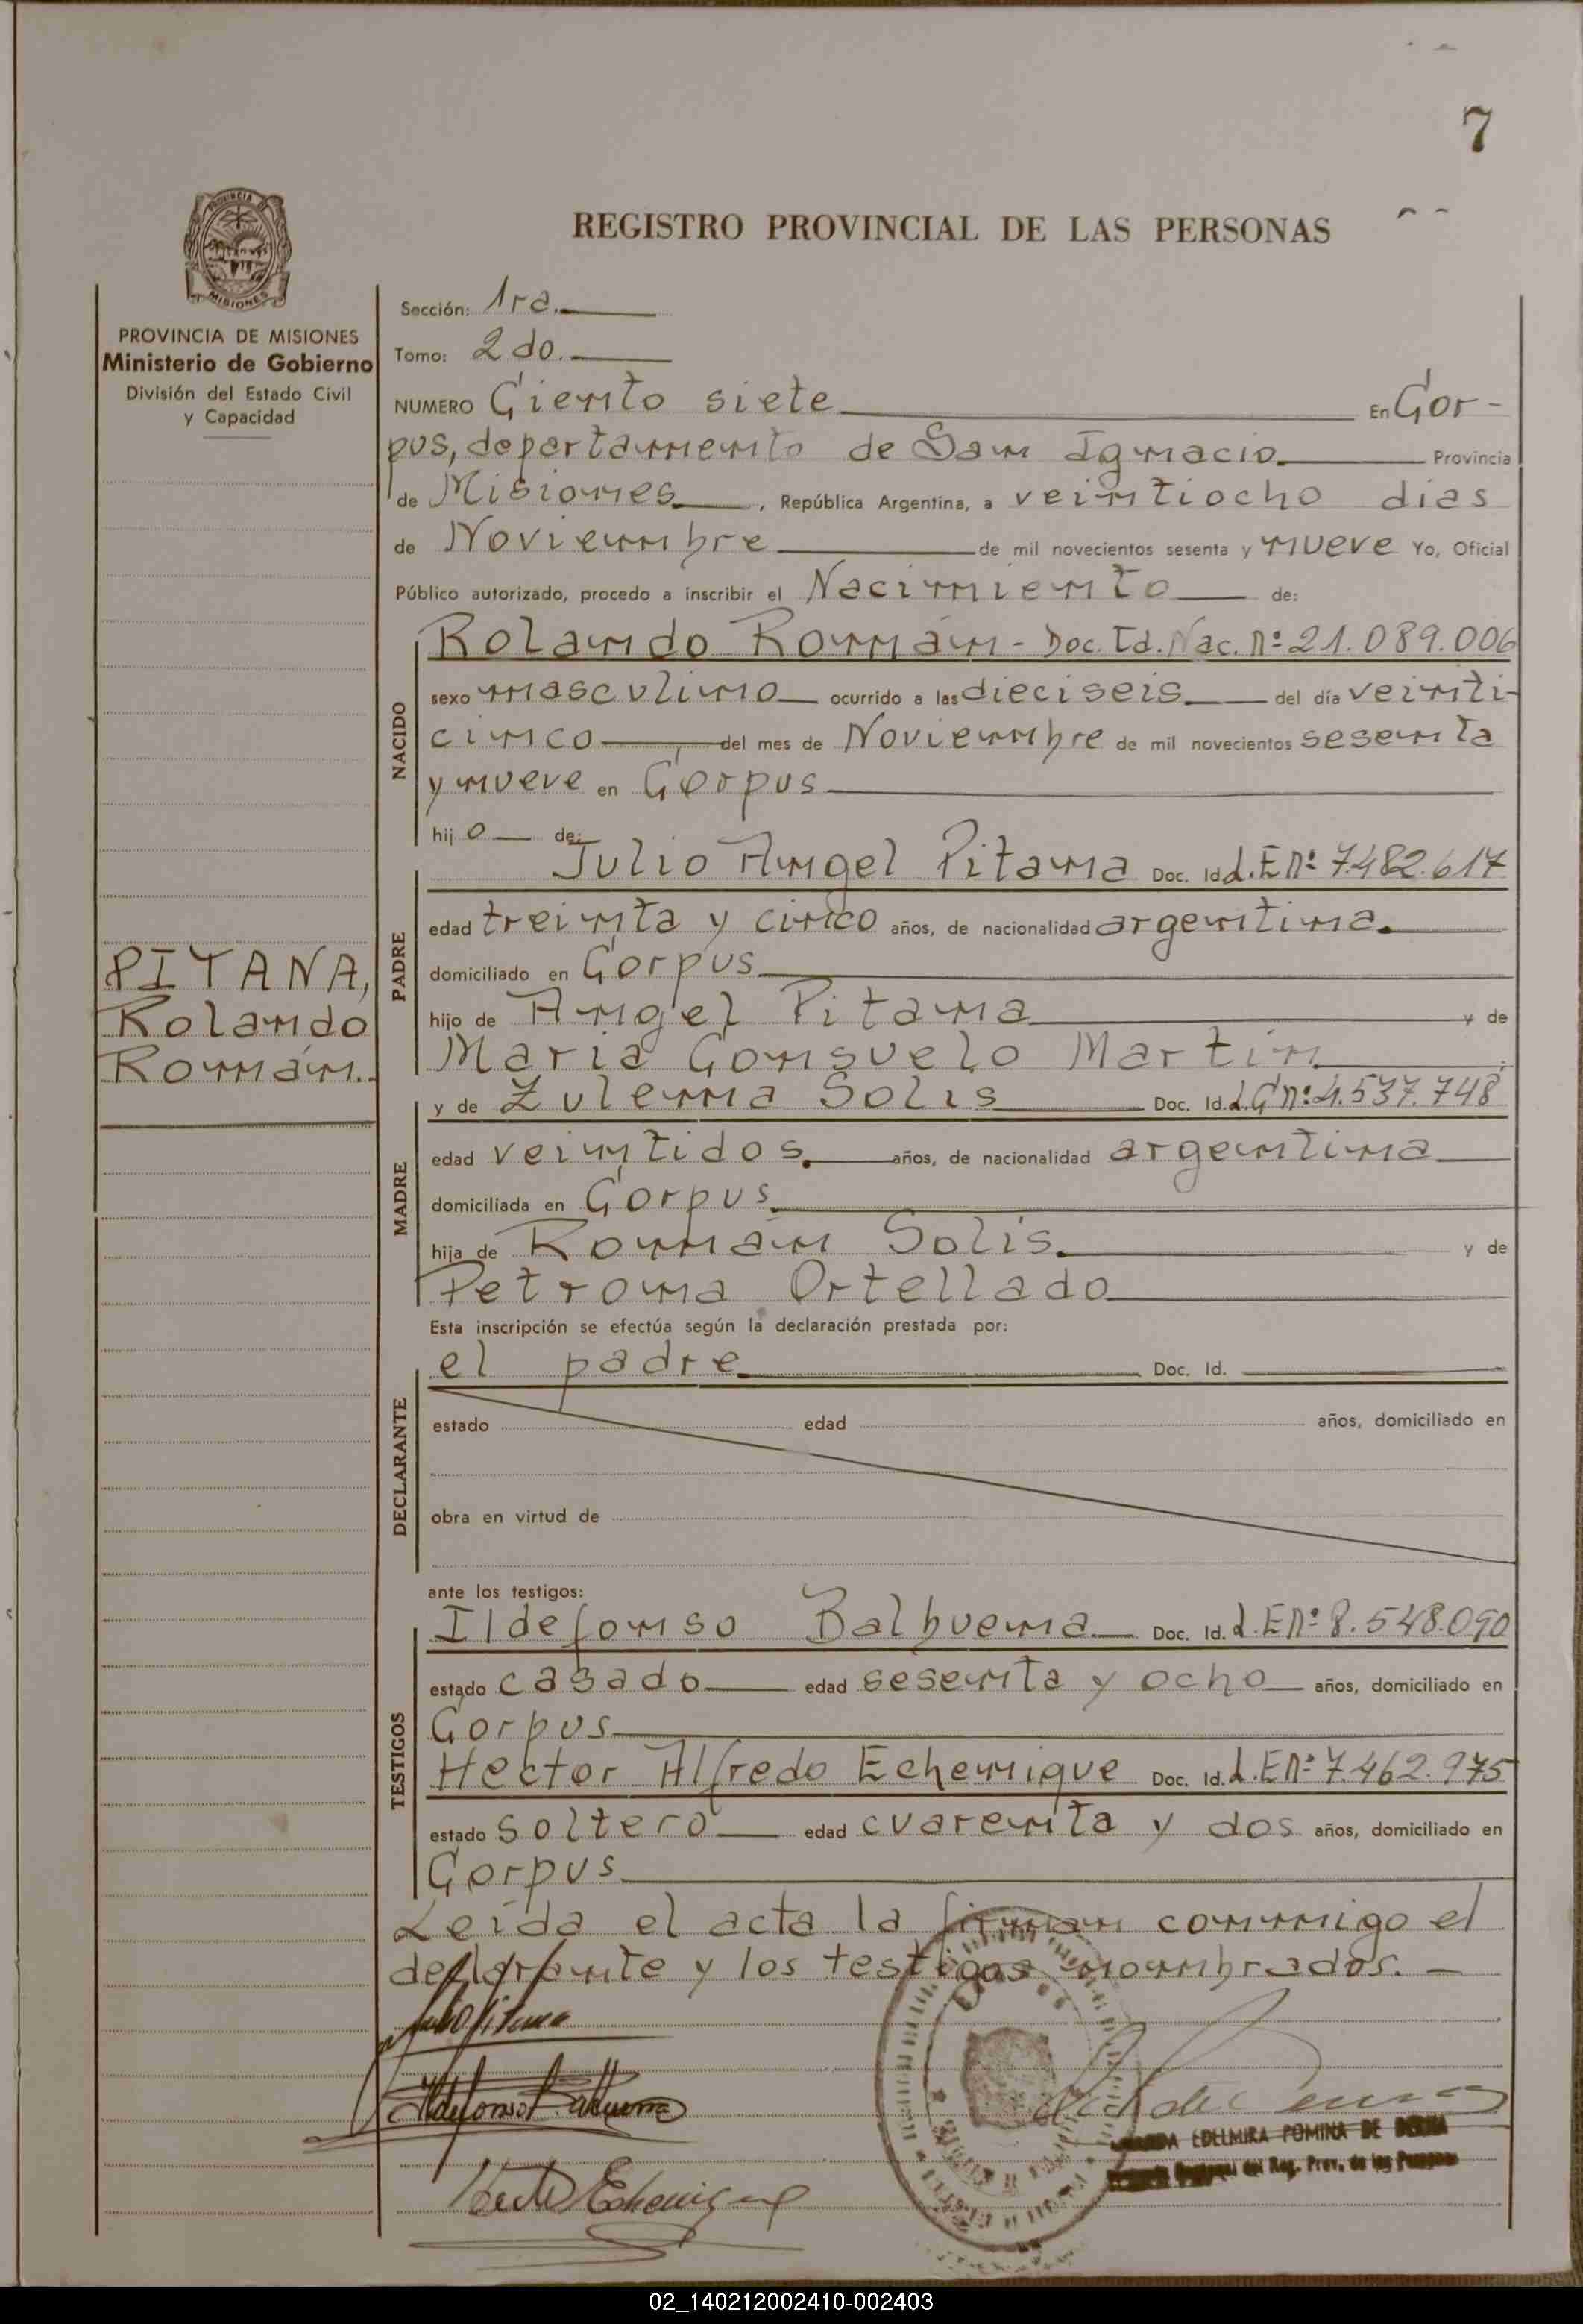 7
REGISTRO PROVINCIAL DE LAS PERSONAS
MISIONES
PROVINCIA DE MISIONES
Ministerio de Gobierno
División del Estado Civil
y Capacidad
Sección: 1ra.
Tomo: 2do.
NUMERO Ciento siete En Cor-
pus, departamento de San Ignacio. Provincia
de Misiones, República Argentina, a veintiocho dias
de Noviembre de mil novecientos sesenta y nueve Yo, Oficial
Público autorizado, procedo a inscribir el Nacimiento de:
NACIDO
Rolando Román - Doc. Id. Nac. nº 21.089.006
sexo masculino ocurrido a las dieciseis del día veinti-
cinco del mes de Noviembre de mil novecientos sesenta
y nueve en Corpus
hijo de:
PADRE
Julio Angel Pitana Doc. Id. L.E nº 7.482.617
edad treinta y cinco años, de nacionalidad argentina.
domiciliado en Corpus
hijo de Angel Pitana y de
Maria Consuelo Martin
PITANA,
Rolando
Román.
MADRE
y de Zulema Solis Doc. Id. L.C nº 4.537.748
edad veintidos. años, de nacionalidad argentina
domiciliada en Corpus.
hija de Román Solis. y de
Petrona Ortellado
Esta inscripción se efectúa según la declaración prestada por:
DECLARANTE
el padre. Doc. Id.
estado edad años, domiciliado en
obra en virtud de
ante los testigos:
TESTIGOS
Ildefonso Balbuena Doc. Id. L.E nº 8.548.090
estado casado edad sesenta y ocho años, domiciliado en
Corpus
Hector Alfredo Echenique Doc. Id. L.E nº 7.462.975
estado soltero edad cuarenta y dos años, domiciliado en
Corpus
Leída el acta la firman conmigo el
declarante y los testigos nombrados. -
Julio Pitana
Ildefonso Balbuena
EDELMIRA POMINA DE
del Reg. Prov. de las Personas
Hector Echenique
02_140212002410-002403